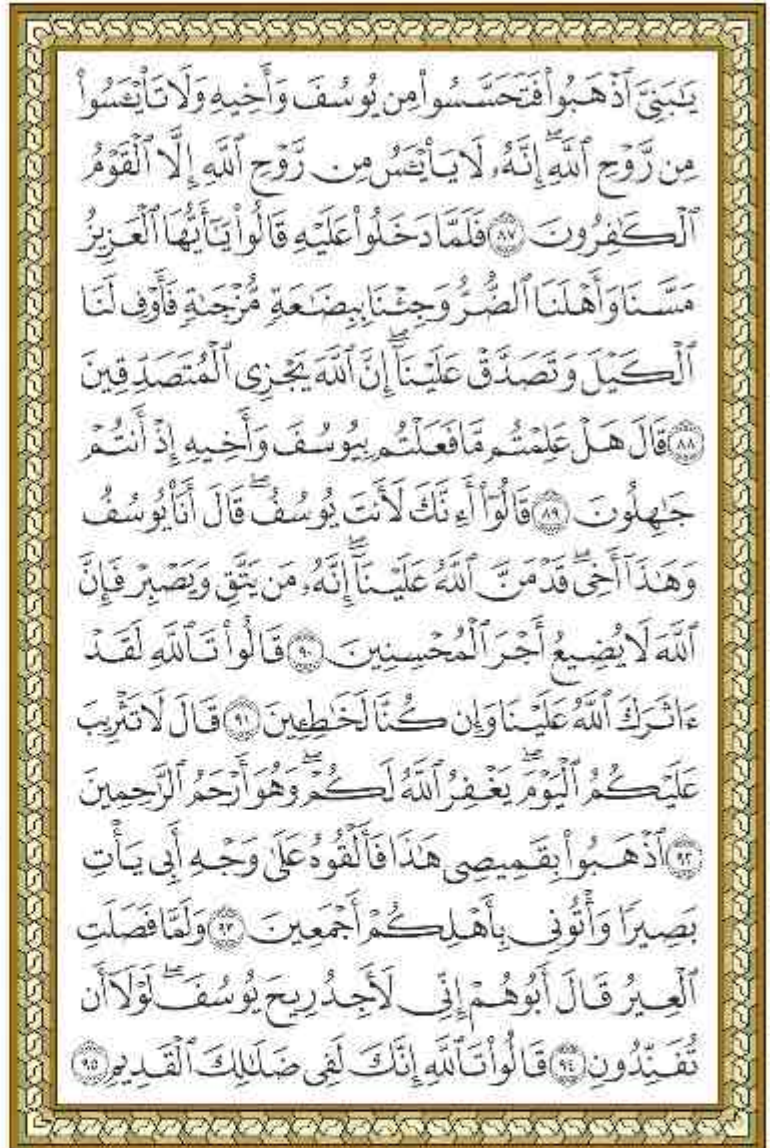 يَـٰبَنِىَّ ٱذْهَبُوا۟ فَتَحَسَّسُوا۟ مِن يُوسُفَ وَأَخِيهِ وَلَا تَا۟يْـَٔسُوا۟
مِن رَّوْحِ ٱللَّهِ ۖ إِنَّهُۥ لَا يَا۟يْـَٔسُ مِن رَّوْحِ ٱللَّهِ إِلَّا ٱلْقَوْمُ
ٱلْكَـٰفِرُونَ ٨٧ فَلَمَّا دَخَلُوا۟ عَلَيْهِ قَالُوا۟ يَـٰٓأَيُّهَا ٱلْعَزِيزُ
مَسَّنَا وَأَهْلَنَا ٱلضُّرُّ وَجِئْنَا بِبِضَـٰعَةٍ مُّزْجَىٰةٍ فَأَوْفِ لَنَا
ٱلْكَيْلَ وَتَصَدَّقْ عَلَيْنَآ ۖ إِنَّ ٱللَّهَ يَجْزِى ٱلْمُتَصَدِّقِينَ
٨٨ قَالَ هَلْ عَلِمْتُم مَّا فَعَلْتُم بِيُوسُفَ وَأَخِيهِ إِذْ أَنتُمْ
جَـٰهِلُونَ ٨٩ قَالُوٓا۟ أَءِنَّكَ لَأَنتَ يُوسُفُ ۖ قَالَ أَنَا۠ يُوسُفُ
وَهَـٰذَآ أَخِى ۖ قَدْ مَنَّ ٱللَّهُ عَلَيْنَآ ۖ إِنَّهُۥ مَن يَتَّقِ وَيَصْبِرْ فَإِنَّ
ٱللَّهَ لَا يُضِيعُ أَجْرَ ٱلْمُحْسِنِينَ ٩٠ قَالُوا۟ تَٱللَّهِ لَقَدْ
ءَاثَرَكَ ٱللَّهُ عَلَيْنَا وَإِن كُنَّا لَخَـٰطِـِٔينَ ٩١ قَالَ لَا تَثْرِيبَ
عَلَيْكُمُ ٱلْيَوْمَ ۖ يَغْفِرُ ٱللَّهُ لَكُمْ ۖ وَهُوَ أَرْحَمُ ٱلرَّٰحِمِينَ
٩٢ ٱذْهَبُوا۟ بِقَمِيصِى هَـٰذَا فَأَلْقُوهُ عَلَىٰ وَجْهِ أَبِى يَأْتِ
بَصِيرًا وَأْتُونِى بِأَهْلِكُمْ أَجْمَعِينَ ٩٣ وَلَمَّا فَصَلَتِ
ٱلْعِيرُ قَالَ أَبُوهُمْ إِنِّى لَأَجِدُ رِيحَ يُوسُفَ ۖ لَوْلَآ أَن
تُفَنِّدُونِ ٩٤ قَالُوا۟ تَٱللَّهِ إِنَّكَ لَفِى ضَلَـٰلِكَ ٱلْقَدِيمِ ٩٥